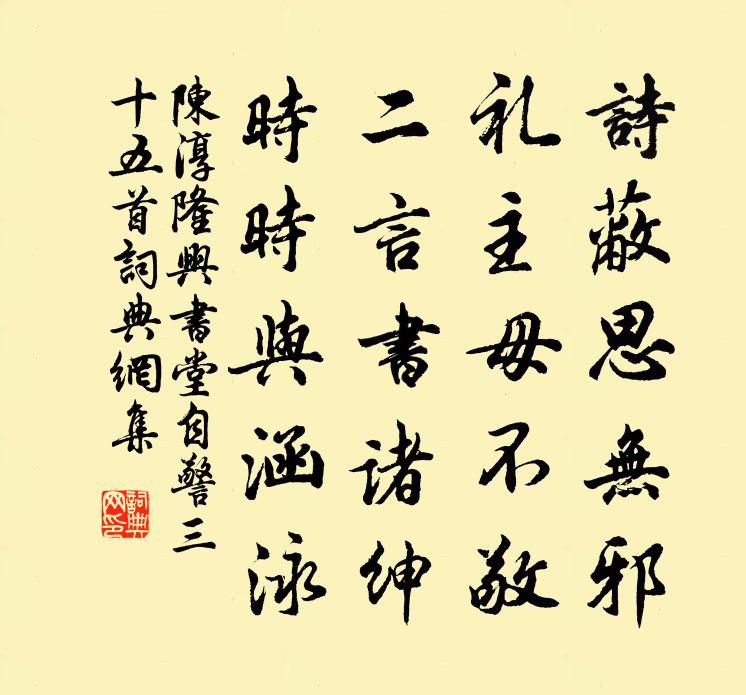 詩蔽思無邪
礼主毋不敬
二言書諸紳
時時與涵泳
陳淳隆興書堂自警三
十五首詞典網集
詞典
网印